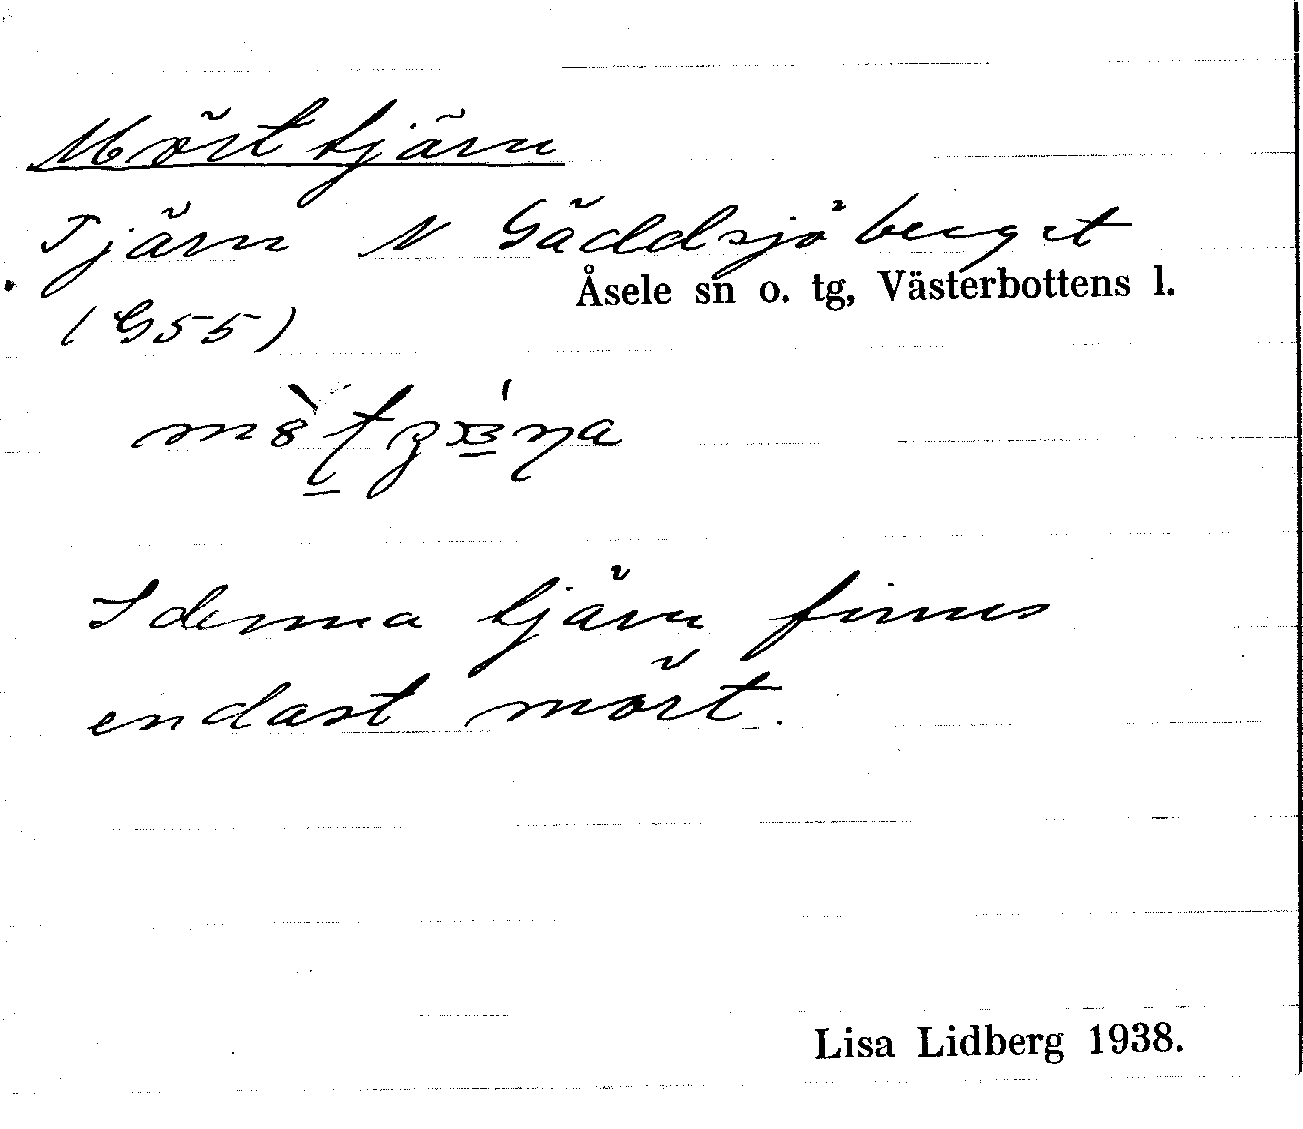 Mörttjärn
Tjärn N Gäddsjöberget
Åsele sn o. tg, Västerbottens l.
(G55)
I denna tjärn finnes
endast mört.
Lisa Lidberg 1938.